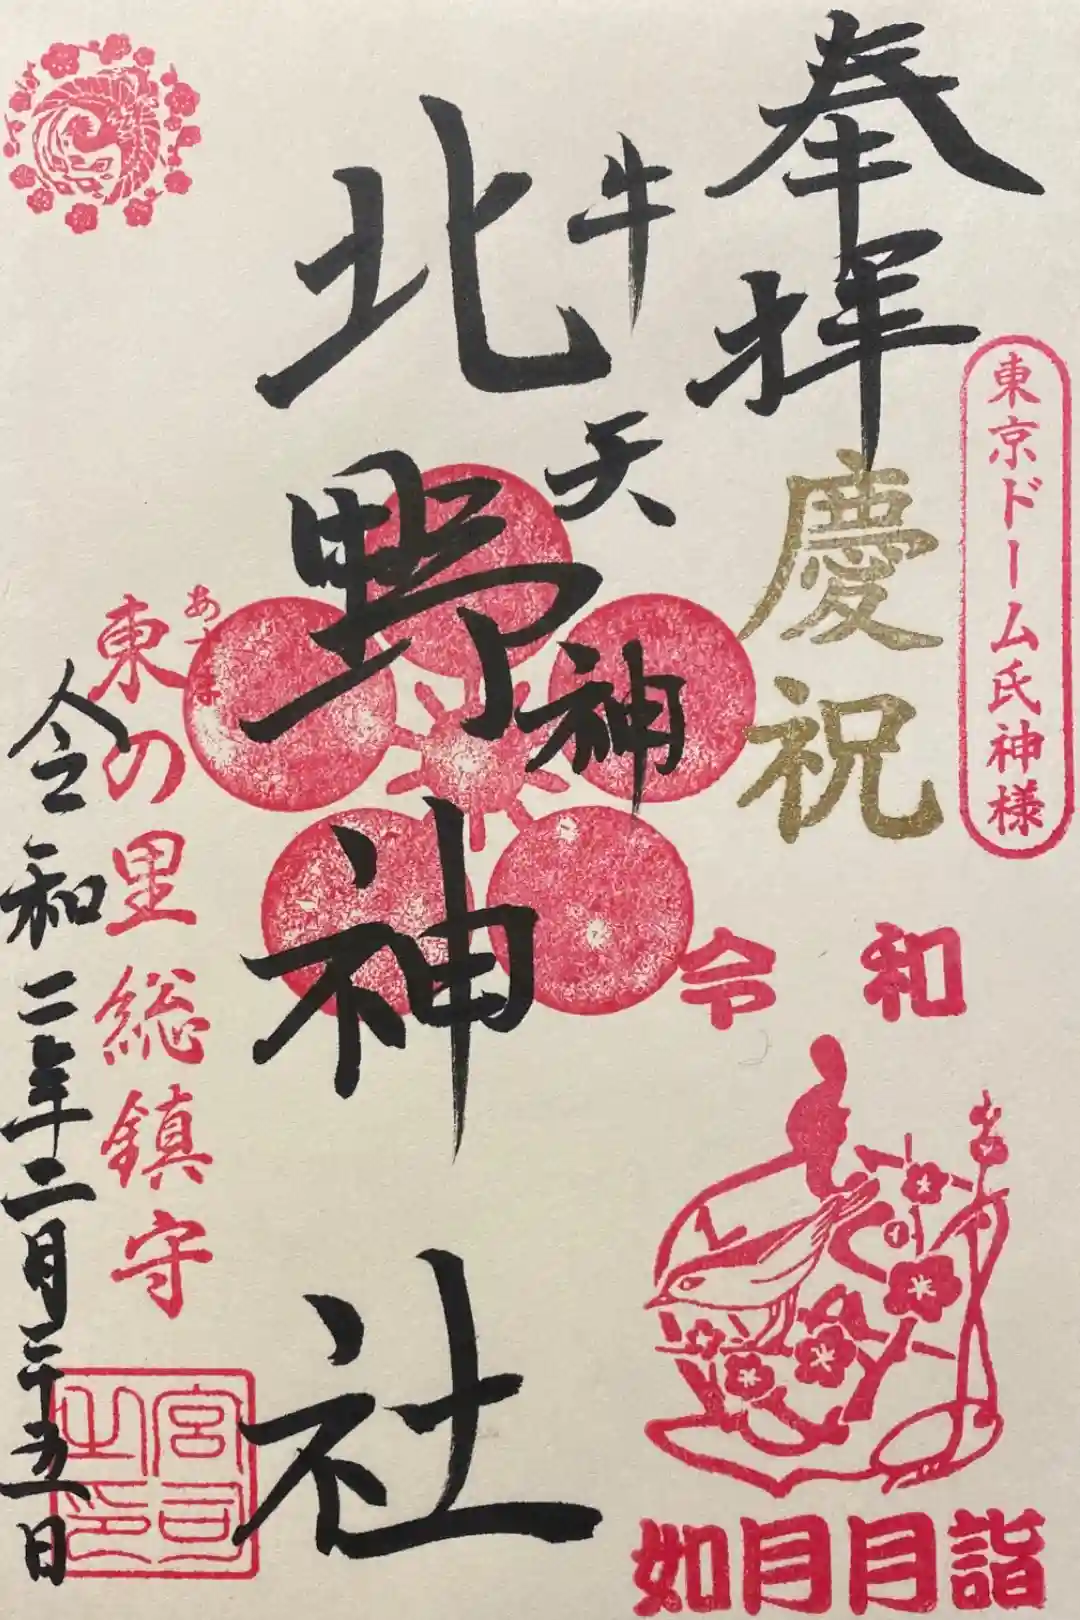 東京ドーム氏神様
奉拝
慶祝
令和
如月月詣
牛天神
北野神社
あづま
東の里総鎮守
令和二年二月二十五日
宮司之印